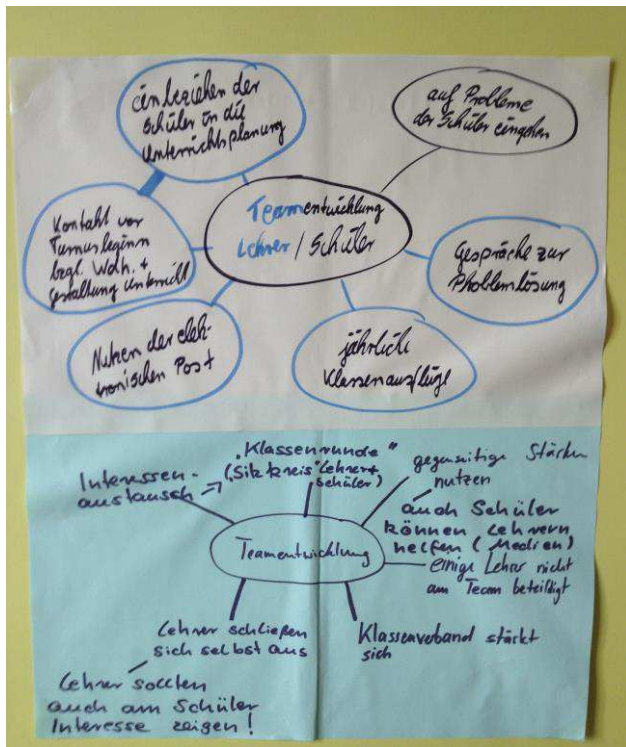 einbeziehen der
Schüler in die
Unterrichtsplanung
auf Probleme
der Schüler eingehen
Teamentwicklung
Lehrer / Schüler
Kontakt vor
Turnusbeginn
bzgl. Wdh. +
Gestaltung Unterricht
Gespräche zur
Problemlösung
Nutzen der elek-
tronischen Post
jährliche
Klassenausflüge
"Klassenrunde"
("Sitzkreis" Lehrer +
Schüler)
Interessen-
austausch →
gegenseitige Stärken
nutzen
auch Schüler
können Lehrern
helfen (Medien)
Teamentwicklung
einige Lehrer nicht
am Team beteiligt
Lehrer schließen
sich selbst aus
Klassenverband stärkt
sich
Lehrer sollten
auch am Schüler
Interesse zeigen!